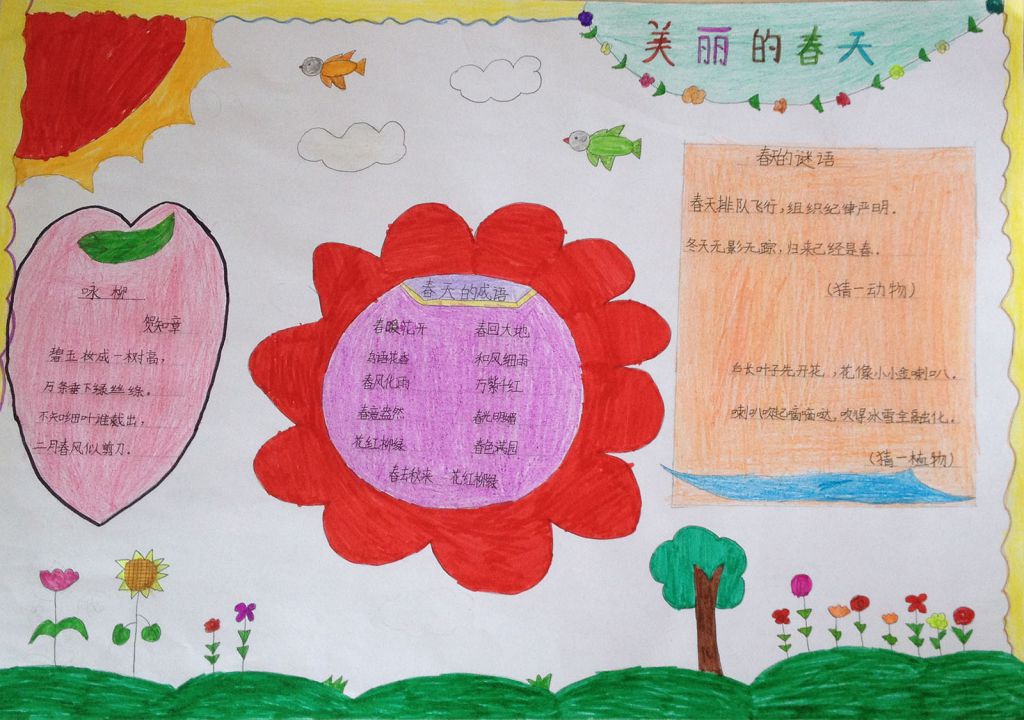 美丽的春天
咏柳
贺知章
碧玉妆成一树高，
万条垂下绿丝绦。
不知细叶谁裁出，
二月春风似剪刀。
春天的成语
春暖花开 春回大地
鸟语花香 和风细雨
春风化雨 万紫千红
春意盎然 春光明媚
花红柳绿 春色满园
春去秋来 花红柳绿
春天的谜语
春天排队飞行，组织纪律严明。
冬天无影无踪，归来已经是春。
（猜一动物）
未长叶子先开花，花像小小金喇叭。
喇叭吹起嘀嘀哒，吹得冰雪全融化。
（猜一植物）